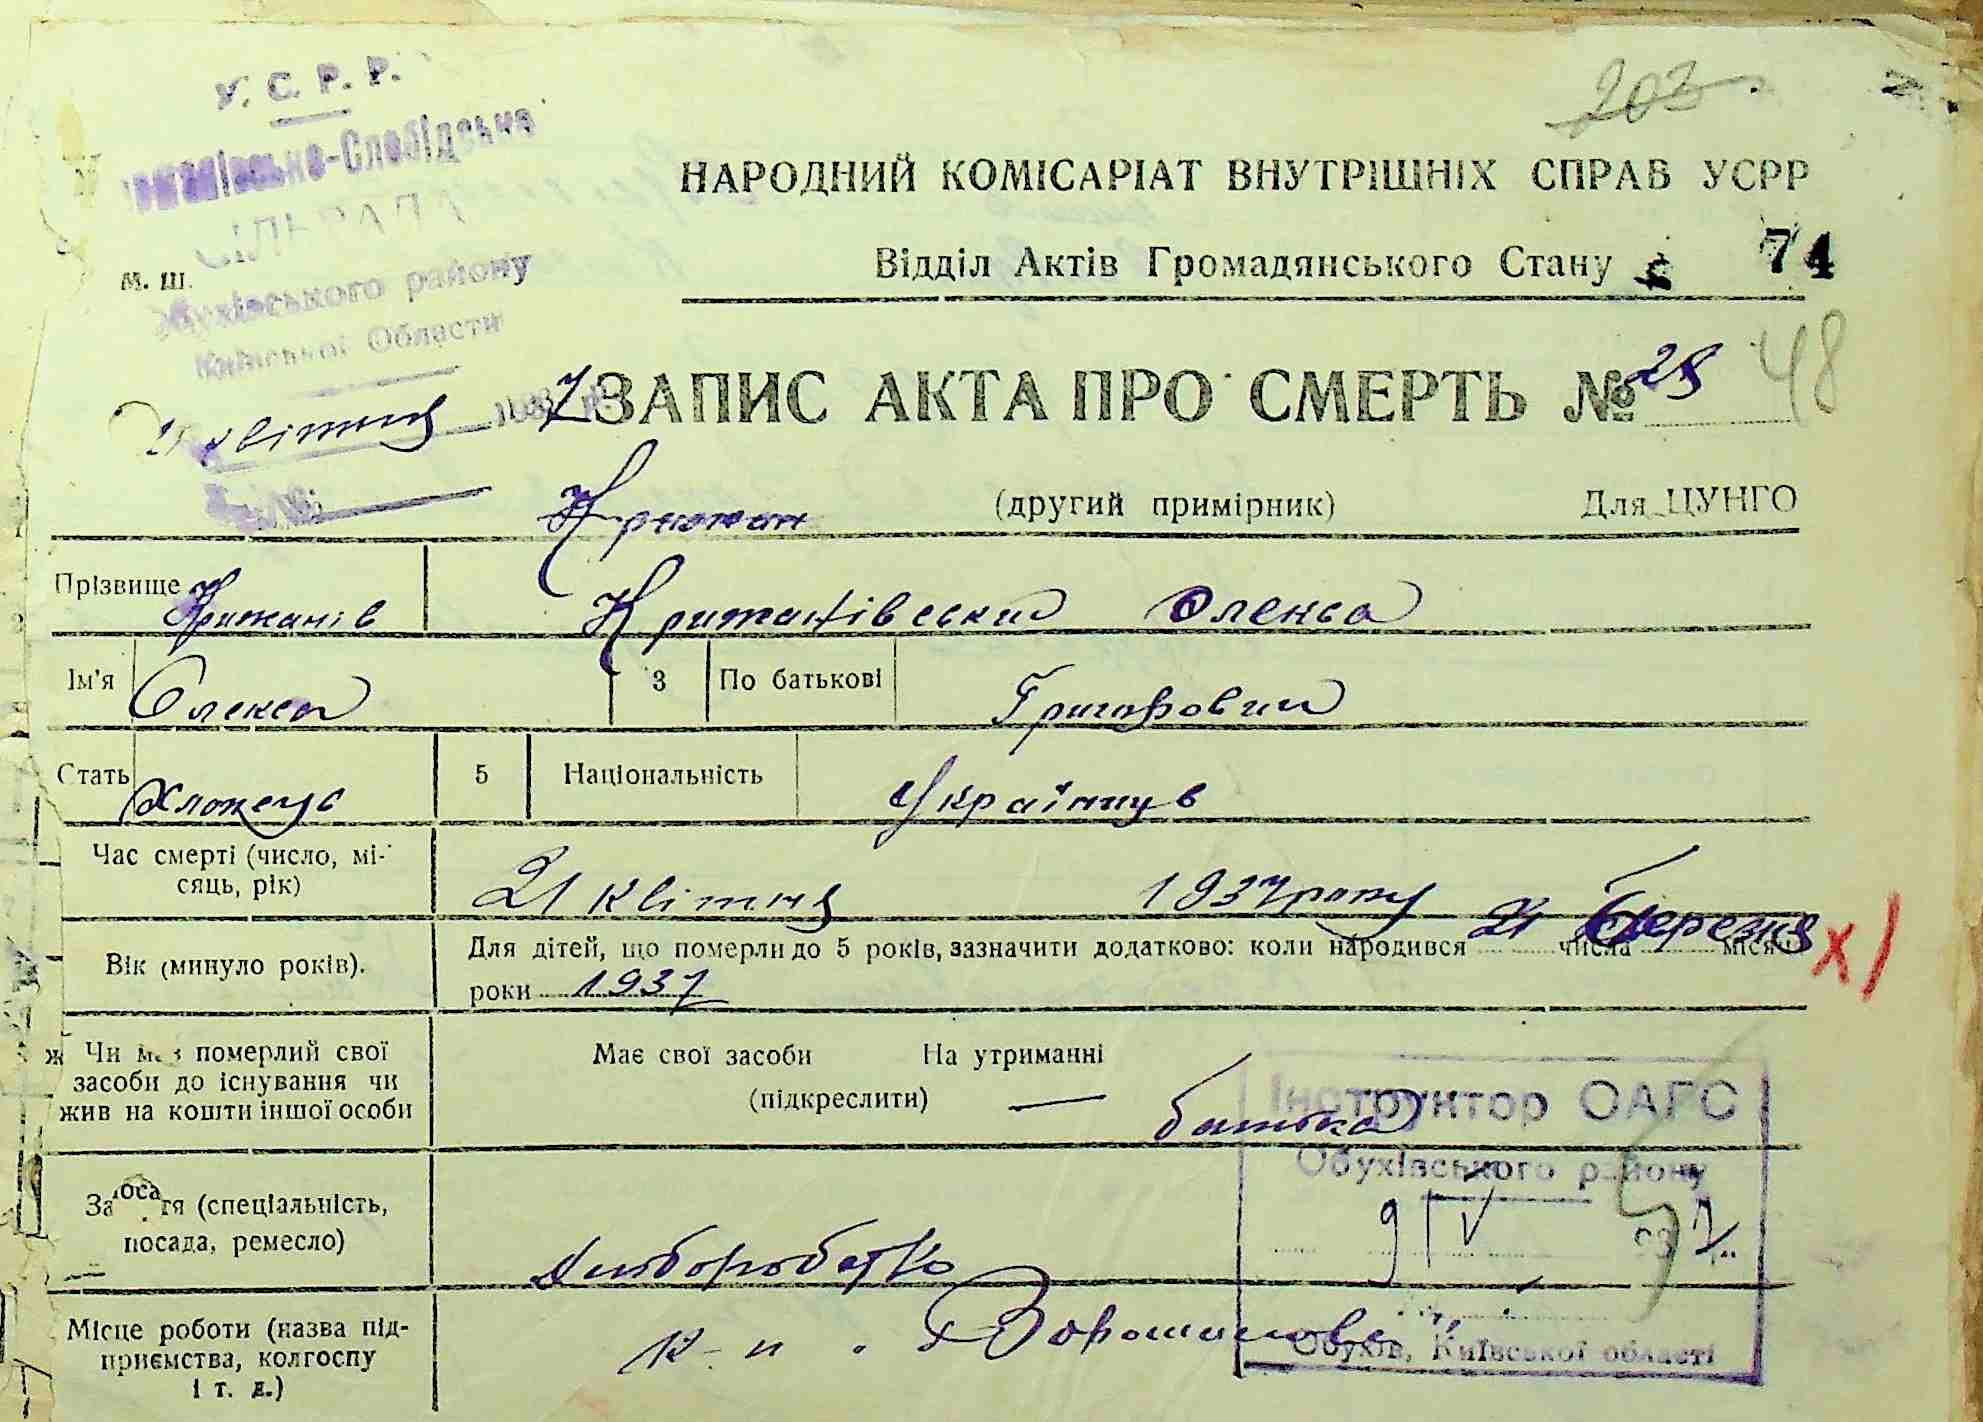 У. С. Р. Р.
203
-Слобідська
СІЛЬРАДА
НАРОДНИЙ КОМІСАРІАТ ВНУТРІШНІХ СПРАВ УСРР
М. Ш.
Обухівського району
Відділ Актів Громадянського Стану
74
Київської Области
21 квітня 1937 р.
ЗАПИС АКТА ПРО СМЕРТЬ № 28
48
(другий примірник) Для ЦУНГО
Прізвище Крижанів Крижанівський Олекса
Ім'я Олекса 3 По батькові Григорович
Стать Хлопець 5 Національність Українець
Час смерті (число, мі-
сяць, рік) 21 квітня 1937 року
Вік (минуло років). Для дітей, що померли до 5 років, зазначити додатково: коли народився 21 числа Березня місяця х)
роки 1937
Чи мав померлий свої
засоби до існування чи
жив на кошти іншої особи
Має свої засоби На утриманні
(підкреслити) — батька
Інструктор ОАГС
Обухівського району
9 IV 1937
Обухів, Київської області
(спеціальність,
посада, ремесло) хлібороб
Місце роботи (назва під-
приємства, колгоспу
і т. д.) к-п. Ворошилова